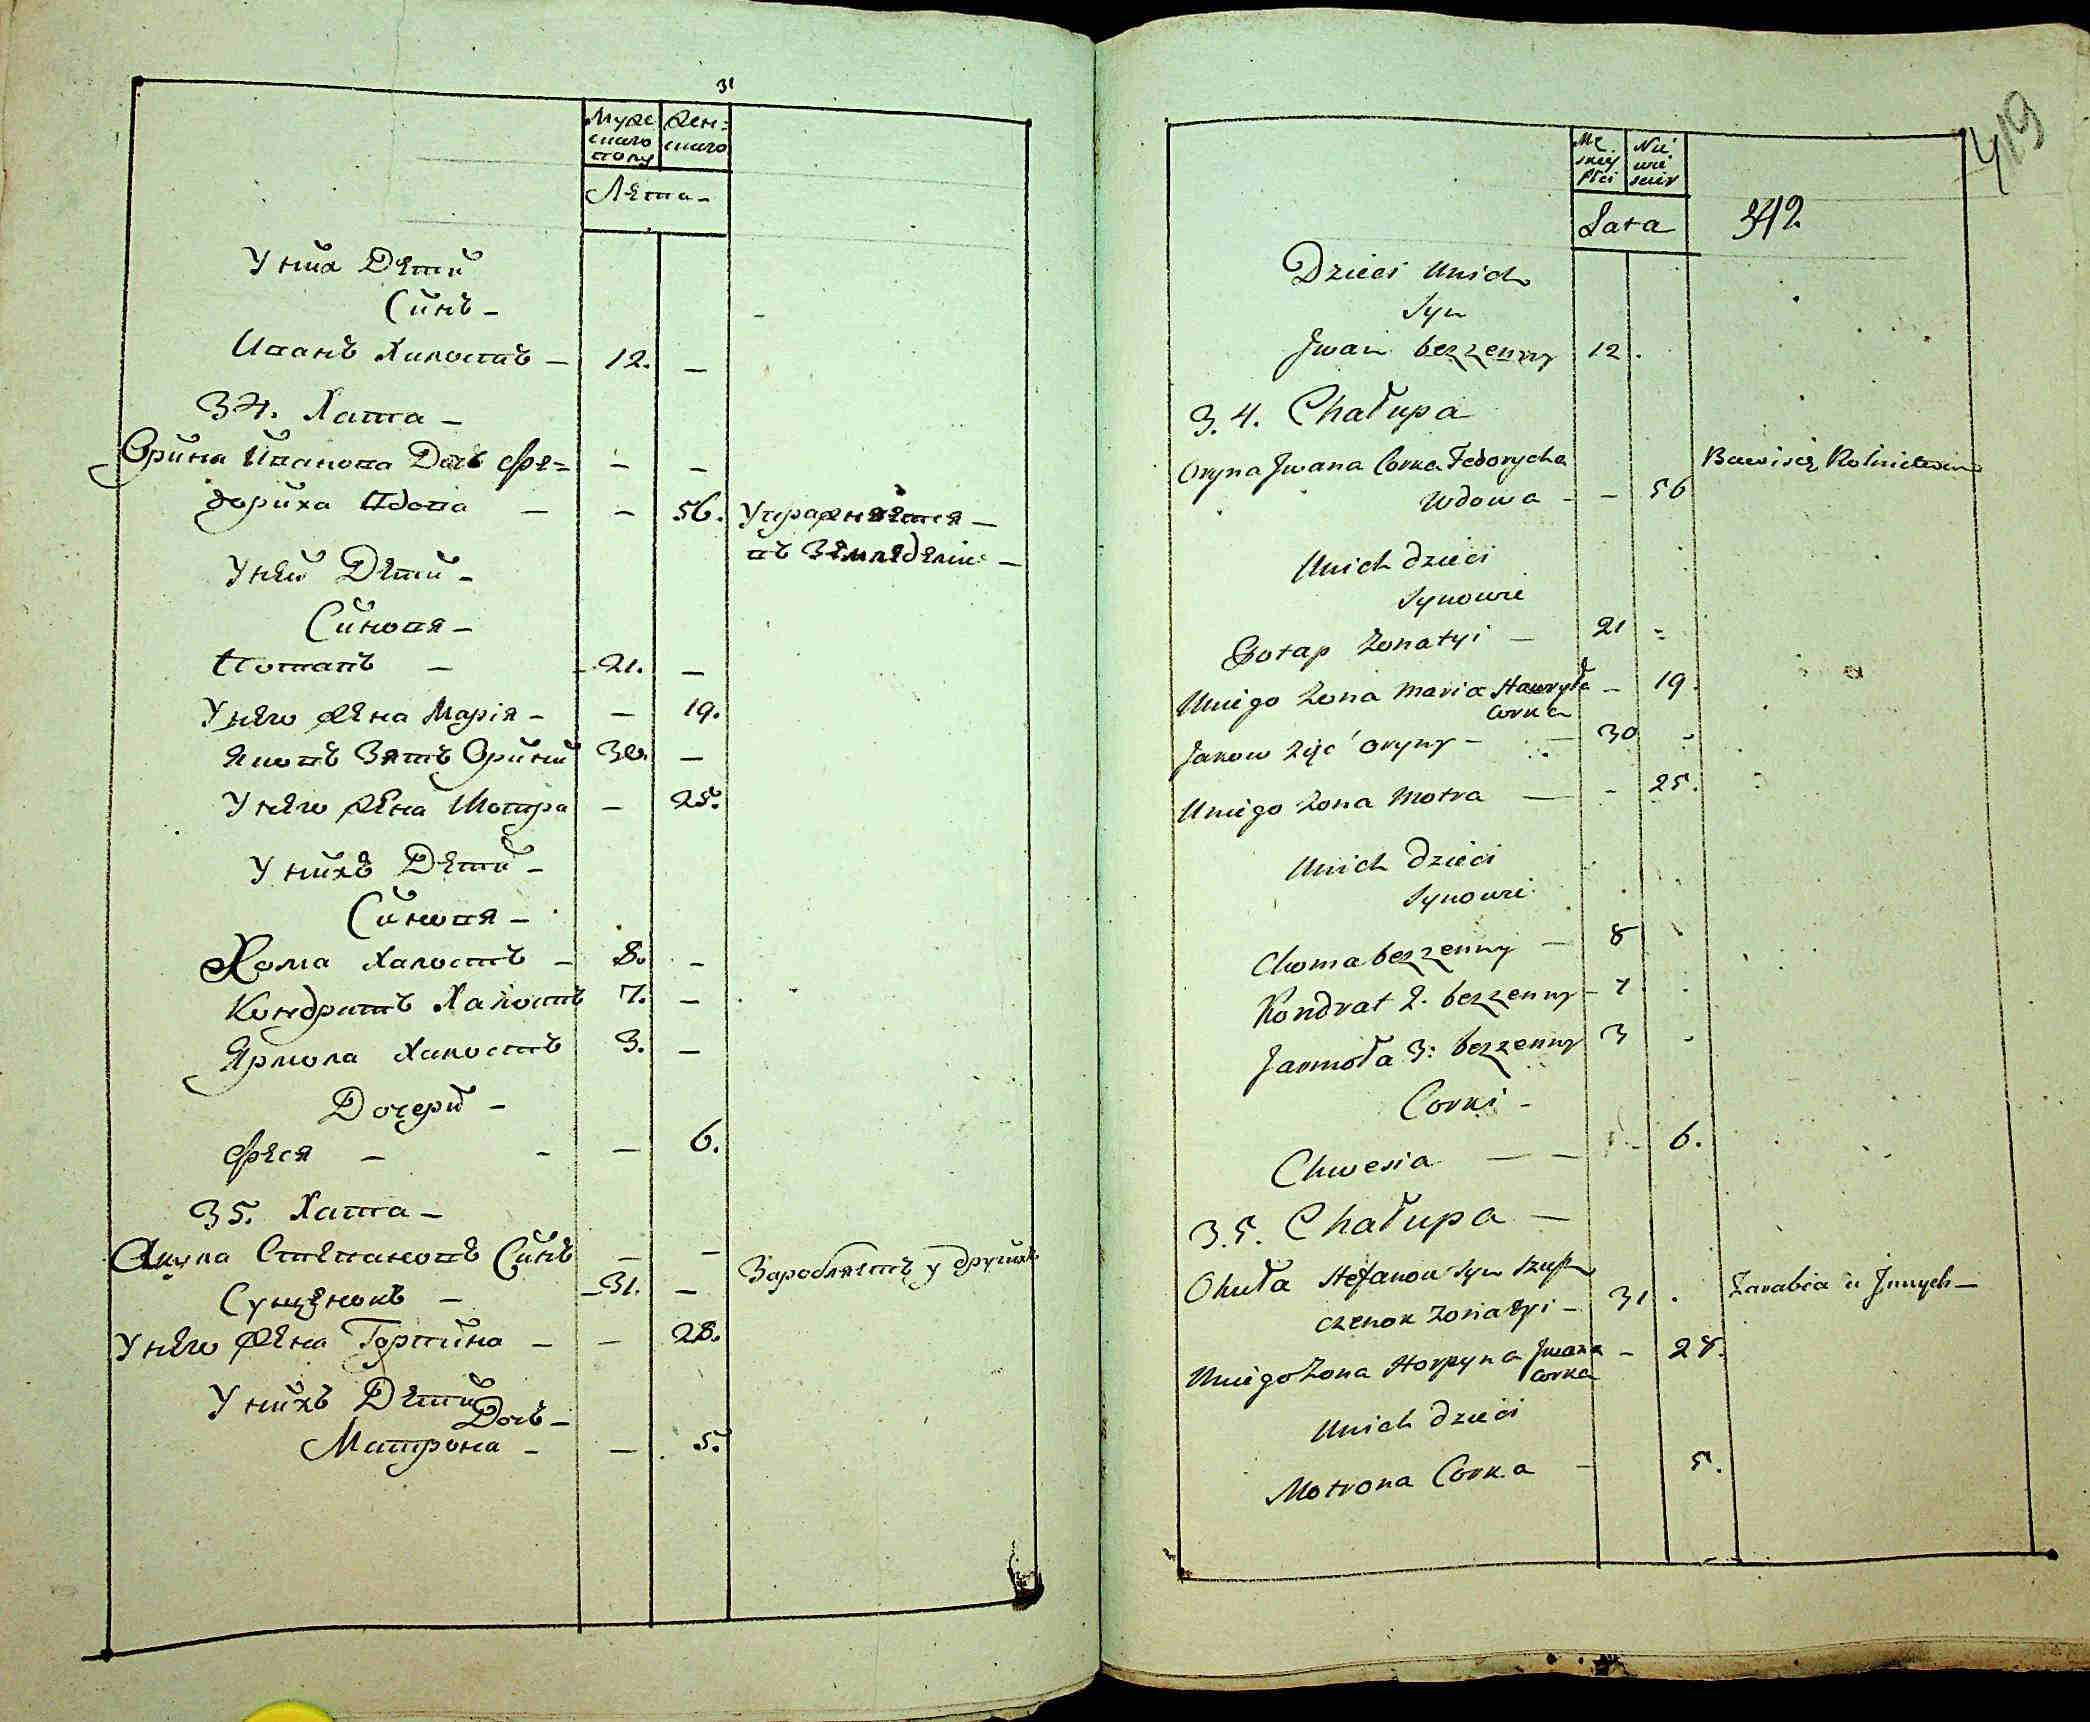 31
Муже
скаго
полу
Жен=
скаго
Лета -
У них Дети
Синъ -
Иванъ Холостъ - 12. -
34. Хата -
Орина Иванова Дочь Фе= - -
дориха Вдова - - 56. Упражняется -
въ Земледелии -
У ней Дети -
Синовя -
Потапъ - - 21. -
У него Жена Марія - - 19.
Яковъ Зять Орини 30. -
У него Жена Мотра - 25.
У нихъ Дети -
Синовя -
Хома Холостъ - 8. -
Кондратъ Холостъ 7. -
Ярмола Холостъ 3. -
Дочери -
Феся - - - 6.
35. Хата -
Акула Степановъ Синъ - - Заробляетъ у другихъ
Сущенокъ - - 31. -
У него Жена Горпина - - 28.
У нихъ Дети
Дочь -
Матрона - - 5.
419
Mę
skiey
Płci
Nie
wie
sciey
Lata
342
Dzieci Unich
Syn
Jwan bezzenny 12.
3.4. Chałupa
Oryna Jwana Corka Fedorycha Bawisię Rolnictwem
Wdowa - - 56
Unich dzieci
Synowie
Potap Zonatyi - 21 -
Uniego Zona Maria Hawryła - 19.
Corka
Jakow Zięć Oryny - - 30 -
Uniego Zona Motra - - 25.
Unich dzieci
Synowie
Choma bezzenny - 8
Kondrat 2. bezzenny - 7
Jarmoła 3: bezzenny 3 -
Corki -
Chwesia - - - 6.
3.5. Chałupa -
Okuła Stefanow Syn Szusz Zarabia u Jnnych -
czenok Zonatyi - 31.
Uniego Zona Horpyna Jwana - 28.
Corka
Unich dzieci
Motrona Corka - 5.